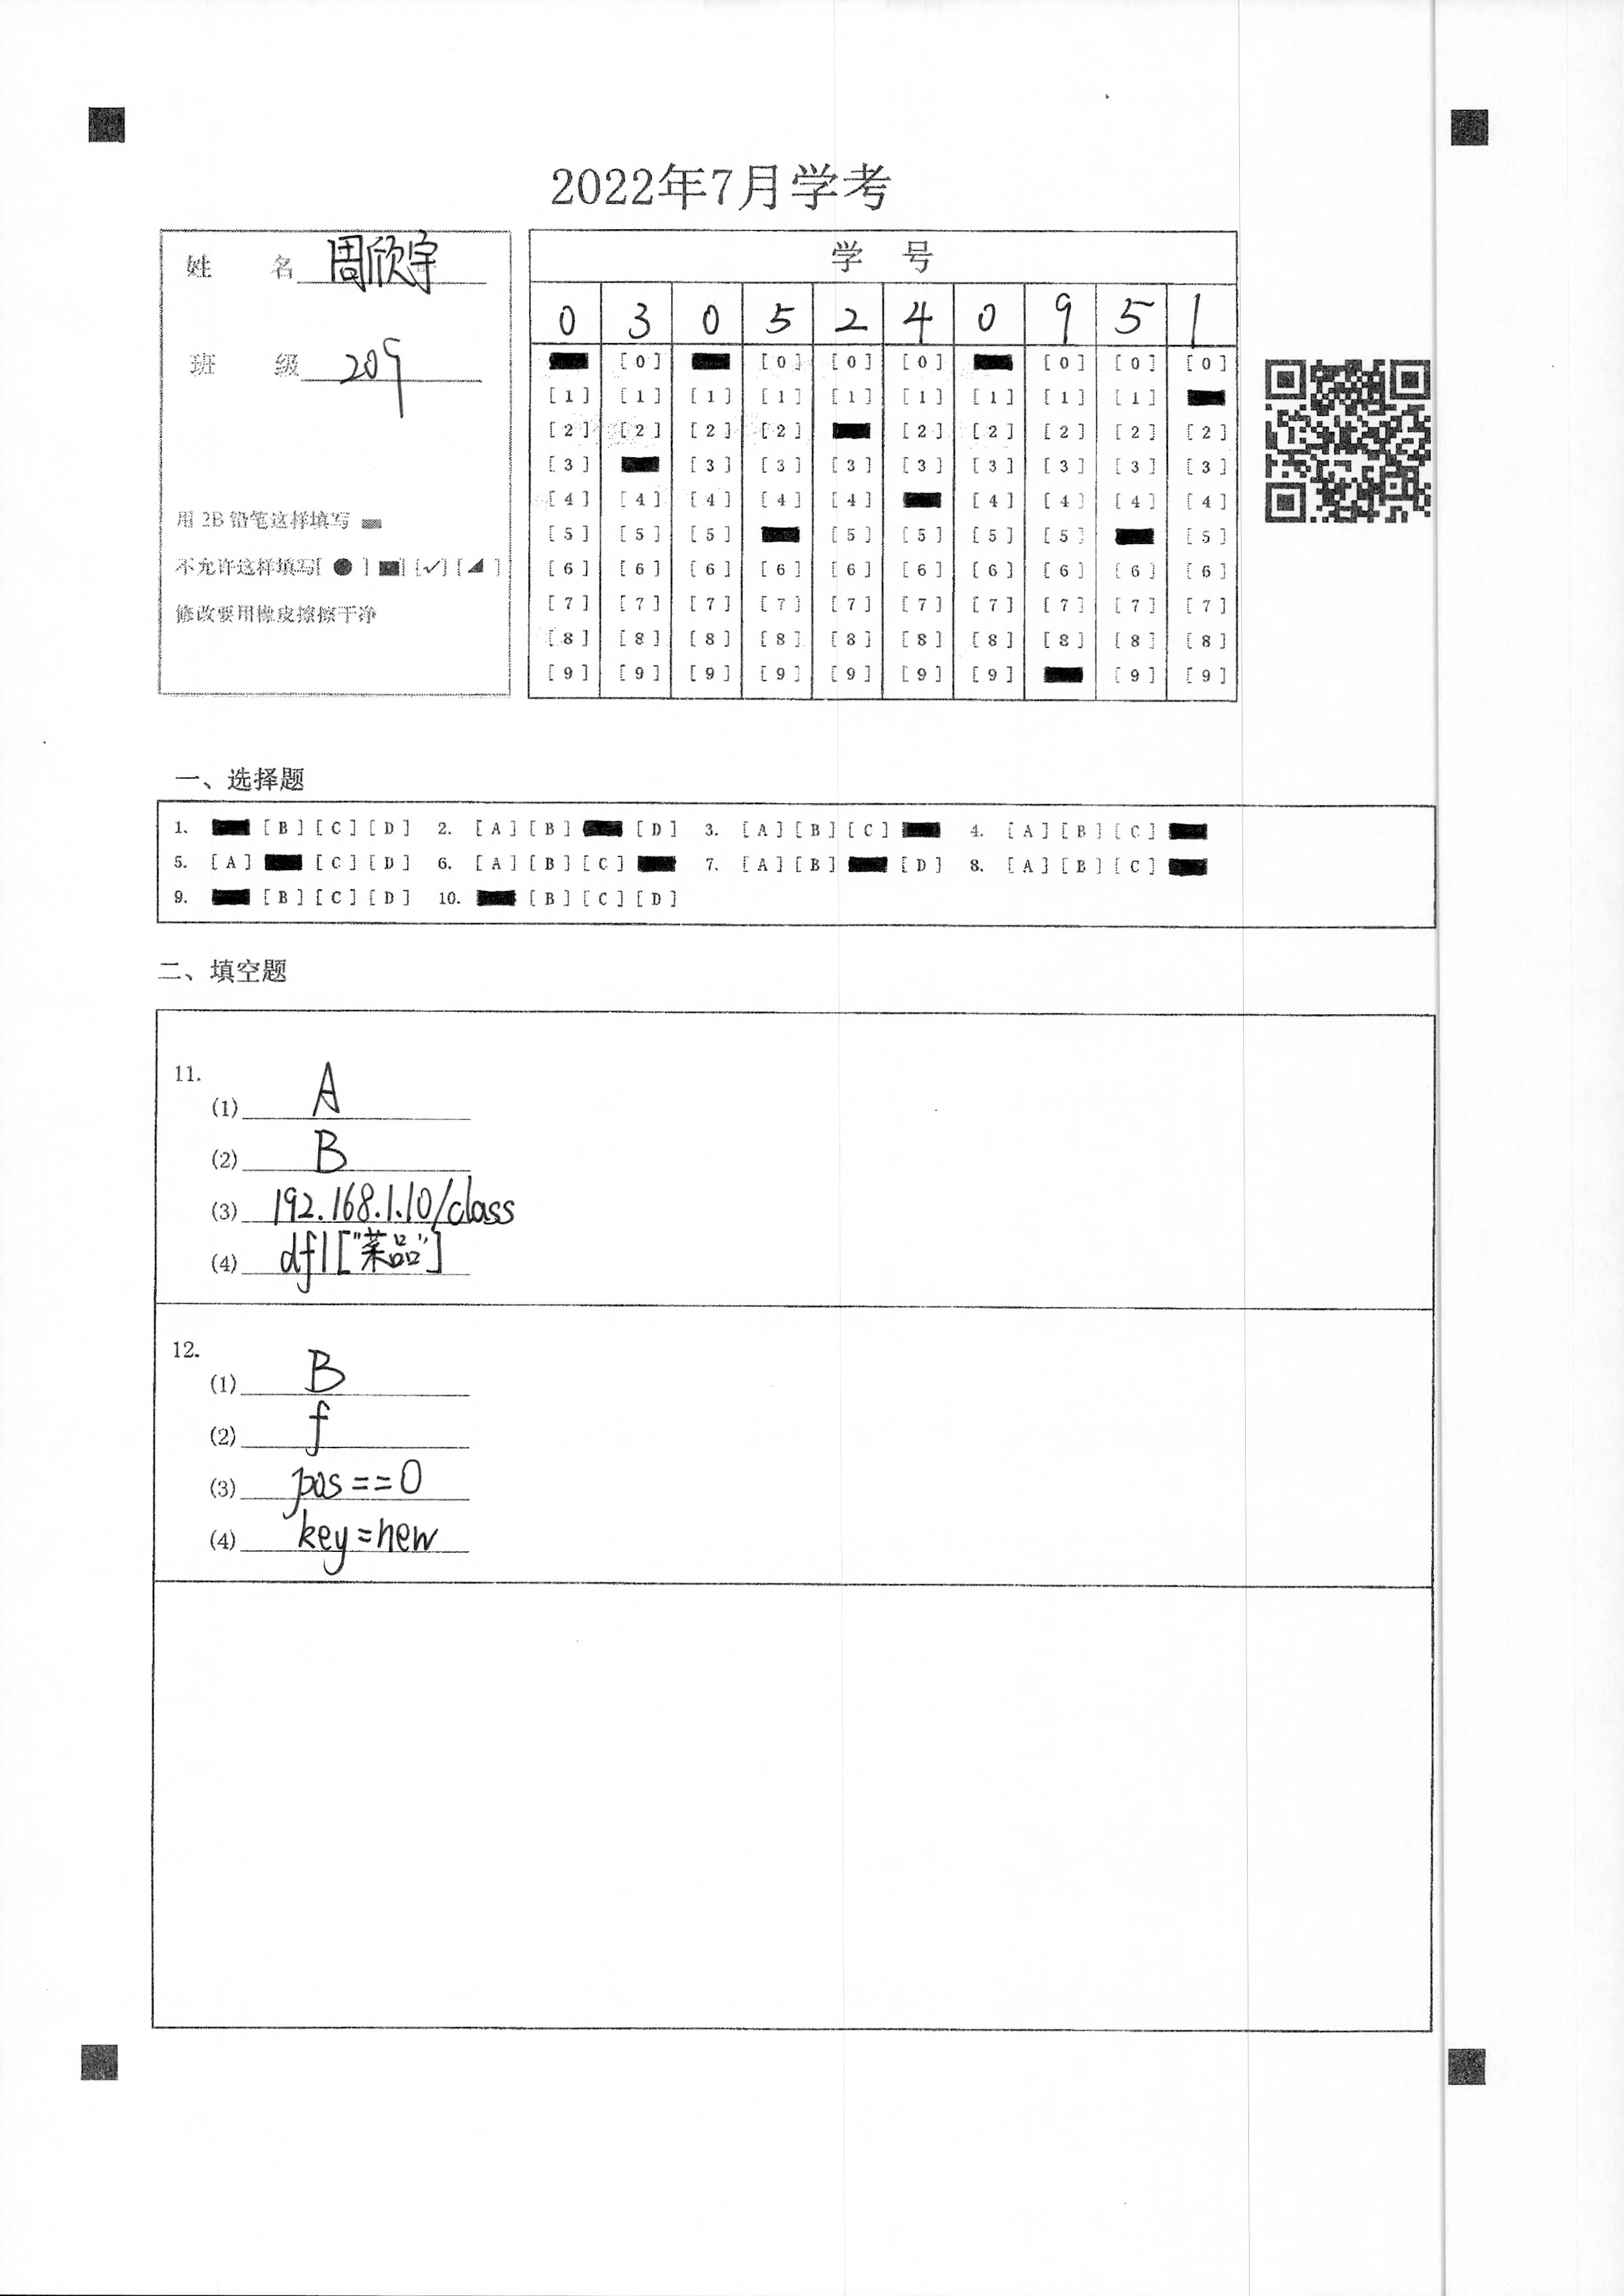 2022年7月学考
姓 名 周欣宇
班 级 209
用 2B 铅笔这样填写
不允许这样填写[ ● ] [■] [✓] [◢ ]
修改要用橡皮擦擦干净
学 号
0 3 0 5 2 4 0 9 5 1
[0] [0] [0] [0] [0] [0] [0]
[1] [1] [1] [1] [1] [1] [1] [1] [1]
[2] [2] [2] [2] [2] [2] [2] [2] [2]
[3] [3] [3] [3] [3] [3] [3] [3] [3]
[4] [4] [4] [4] [4] [4] [4] [4] [4]
[5] [5] [5] [5] [5] [5] [5] [5]
[6] [6] [6] [6] [6] [6] [6] [6] [6] [6]
[7] [7] [7] [7] [7] [7] [7] [7] [7] [7]
[8] [8] [8] [8] [8] [8] [8] [8] [8] [8]
[9] [9] [9] [9] [9] [9] [9] [9] [9]
一、选择题
1. [B] [C] [D] 2. [A] [B] [D] 3. [A] [B] [C] 4. [A] [B] [C]
5. [A] [C] [D] 6. [A] [B] [C] 7. [A] [B] [D] 8. [A] [B] [C]
9. [B] [C] [D] 10. [B] [C] [D]
二、填空题
11.
(1) A
(2) B
(3) 192.168.1.10/class
(4) df1["菜品"]
12.
(1) B
(2) f
(3) pos==0
(4) key=new